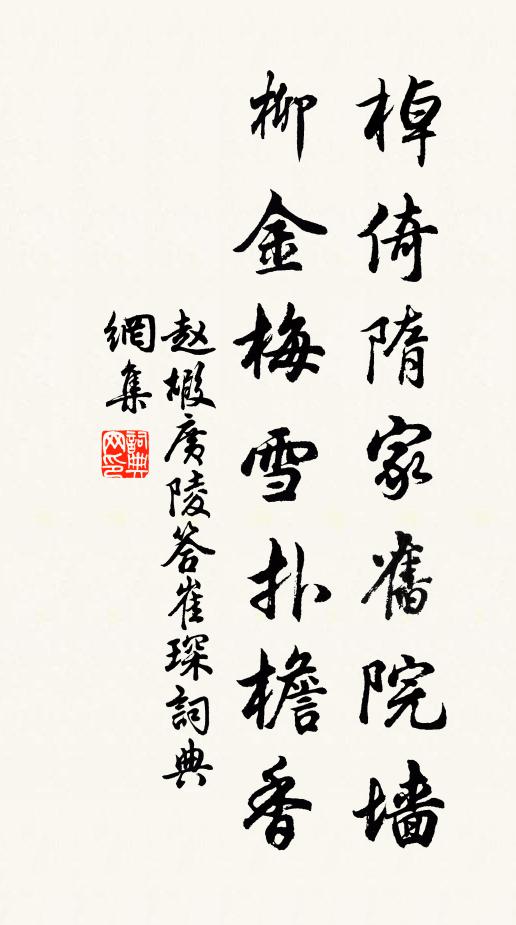 棹倚隋家舊院墙
柳金梅雪扑檐香
赵嘏廣陵答崔琛詞典
網集
詞典网印